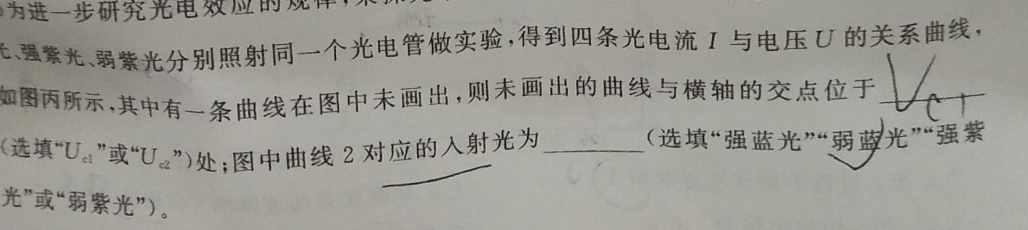 为进一步研究光电效应的规律,
光、强紫光、弱紫光分别照射同一个光电管做实验,得到四条光电流 I 与电压 U 的关系曲线,
如图丙所示,其中有一条曲线在图中未画出,则未画出的曲线与横轴的交点位于 Uc1
(选填“Uc1”或“Uc2”)处;图中曲线 2 对应的入射光为______(选填“强蓝光”“弱蓝光”“强紫
光”或“弱紫光”)。